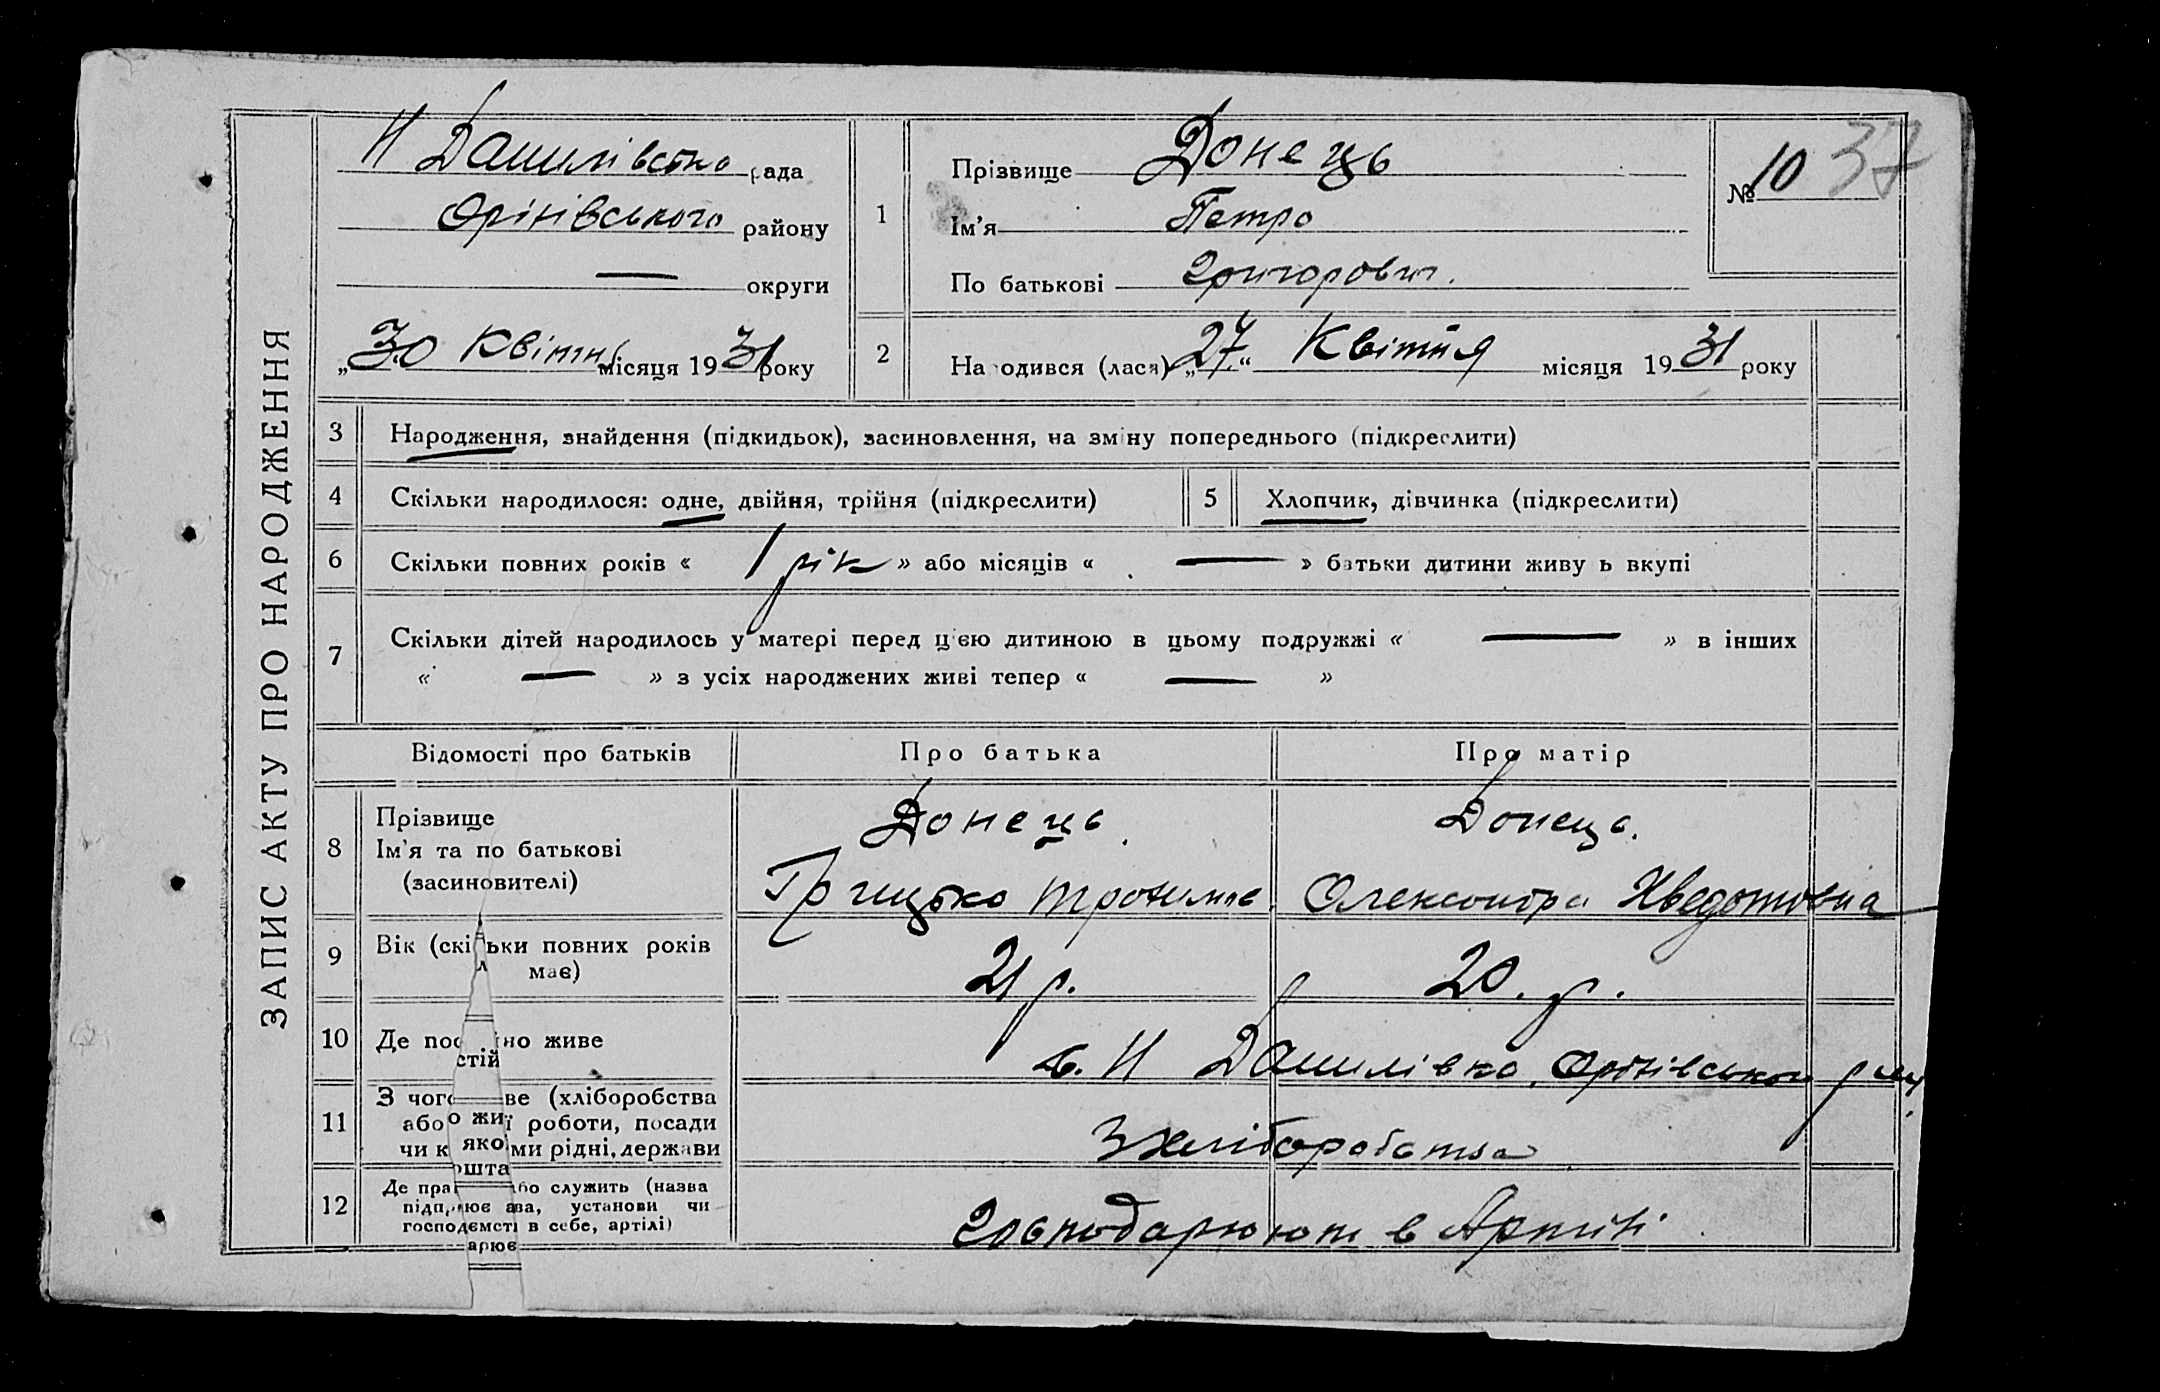 ЗАПИС АКТУ ПРО НАРОДЖЕННЯ
Н Данилівська рада
Оріхівського району
— округи
„30 Квітня місяця 1931 року
1
Прізвище Донець
Ім'я Петро
По батькові Григорович.
№ 10 37
2
Народився (лася) „27“ Квітня місяця 1931 року
3 Народження, знайдення (підкидьок), засиновлення, на зміну попереднього (підкреслити)
4 Скільки народилося: одне, двійня, трійня (підкреслити)
5 Хлопчик, дівчинка (підкреслити)
6 Скільки повних років « 1 рік » або місяців « — » батьки дитини живу ь вкупі
7 Скільки дітей народилось у матері перед цією дитиною в цьому подружжі « — » в інших
« — » з усіх народжених живі тепер « — »
Відомості про батьків Про батька Про матір
8 Прізвище
Ім'я та по батькові
(засиновителі)
Донець.
Грицько
Донець.
Олександра Хведотовна
9 Вік (скільки повних років
має)
21 р. 20. р.
10 Де постійно живе
с. Н Данилівка, Оріхівського р-ну
11 З чого живе (хліборобства
або якої роботи, посади
чи коштами рідні, держави
З хліборобства
12 Де працює або служить (назва
підприємства, установи чи
господарює в себе, артілі)
Господарюють в Артілі